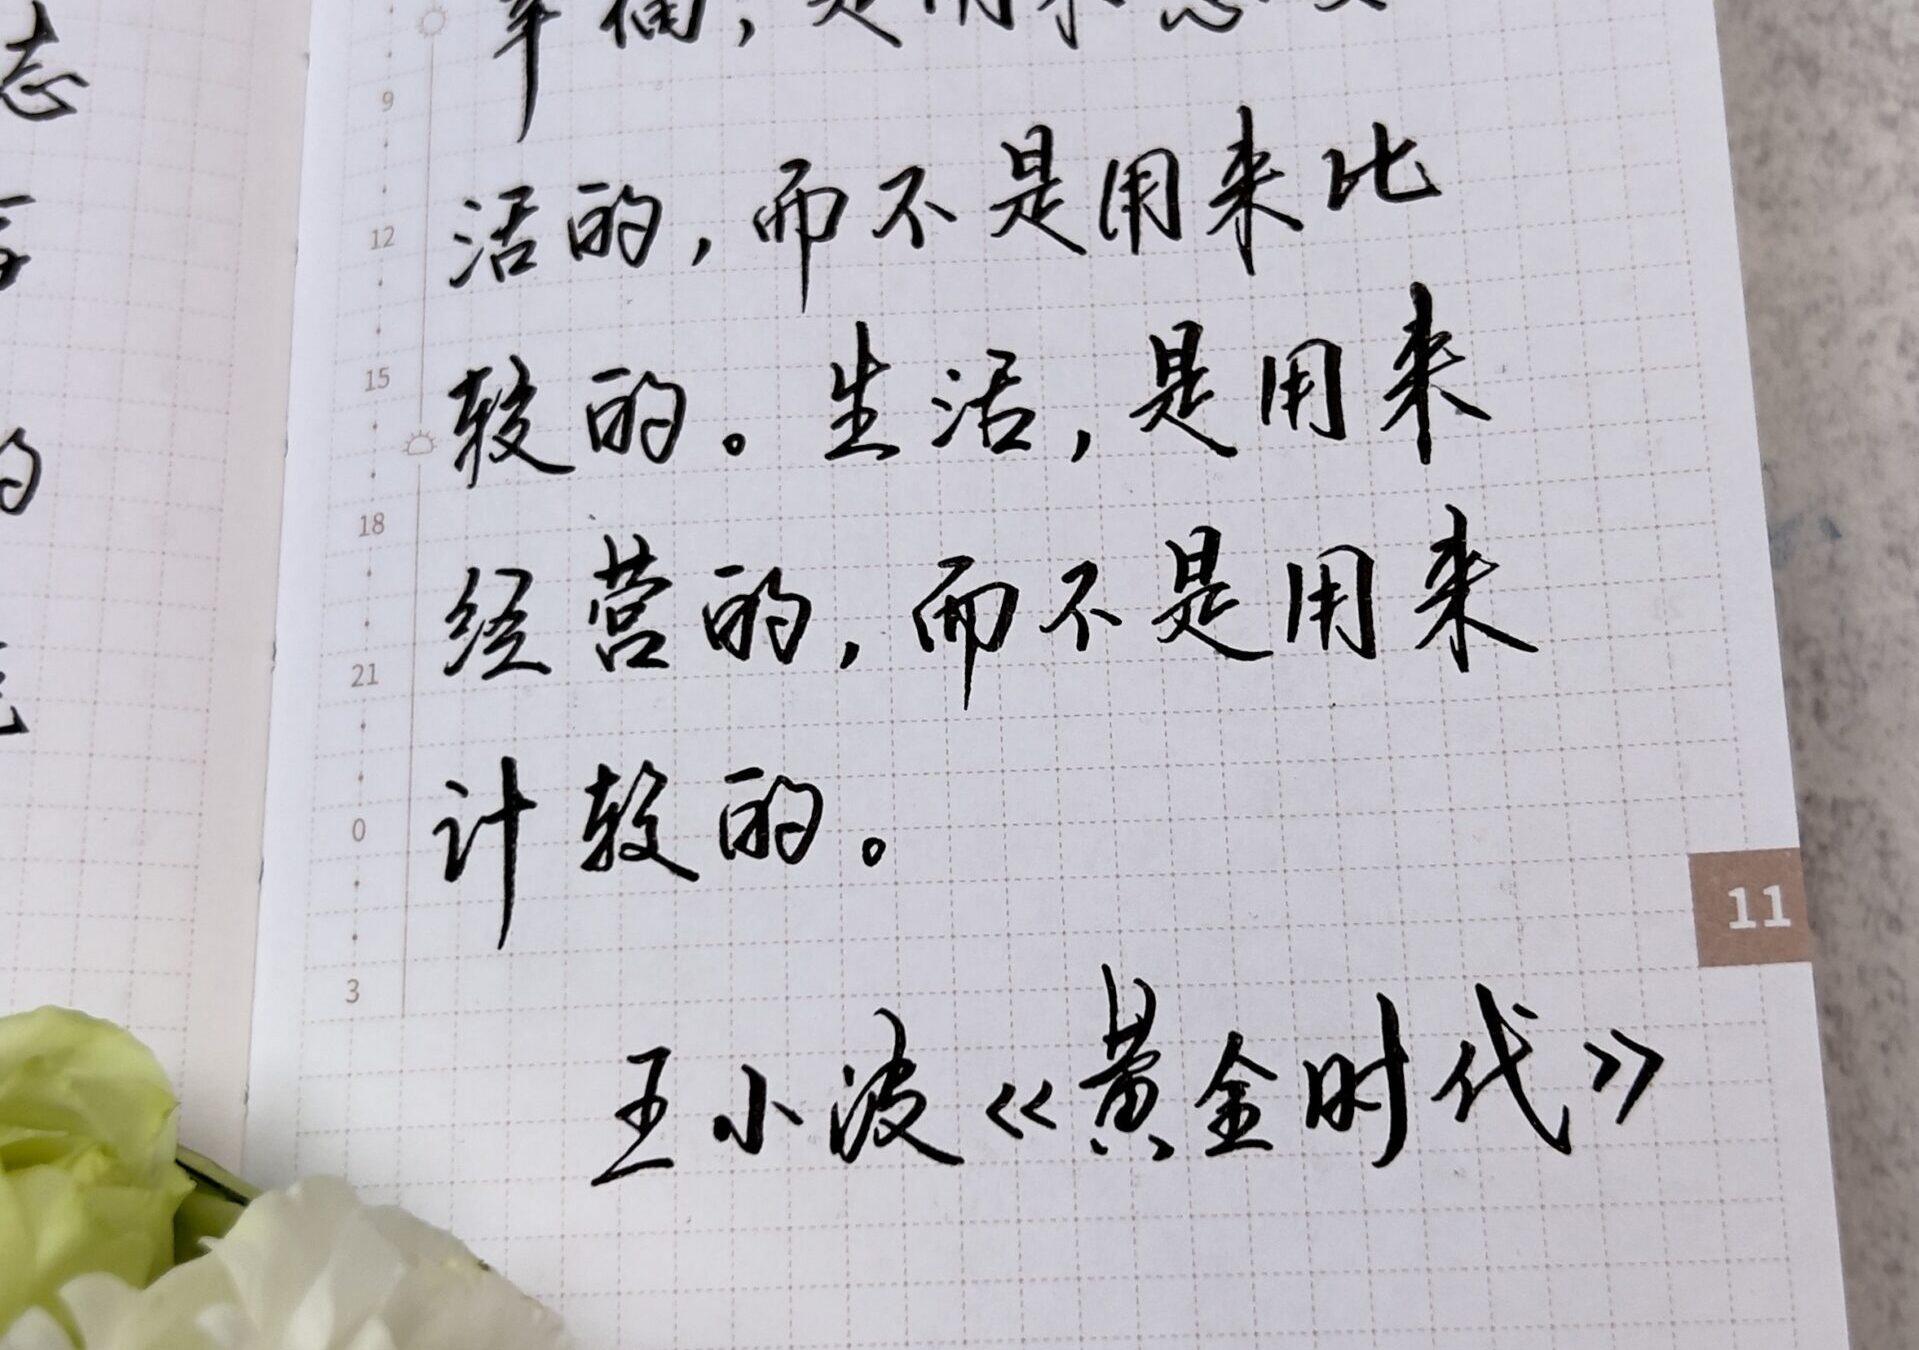 幸福，是用来感
活的，而不是用来比
较的。生活，是用来
经营的，而不是用来
计较的。
王小波《黄金时代》
9
12
15
18
21
0
3
11
志
的